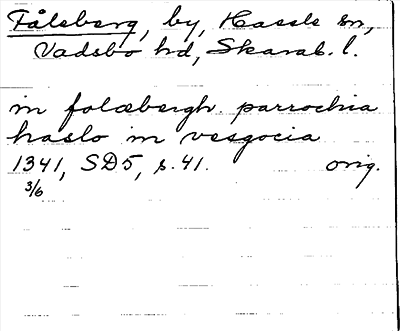 Fåleberg, by, Hassle sn,
Vadsbo hd, Skarab. l.
in folæbergh parrochia
haslo in vesgocia
1341, SD5, s. 41. orig.
3/6